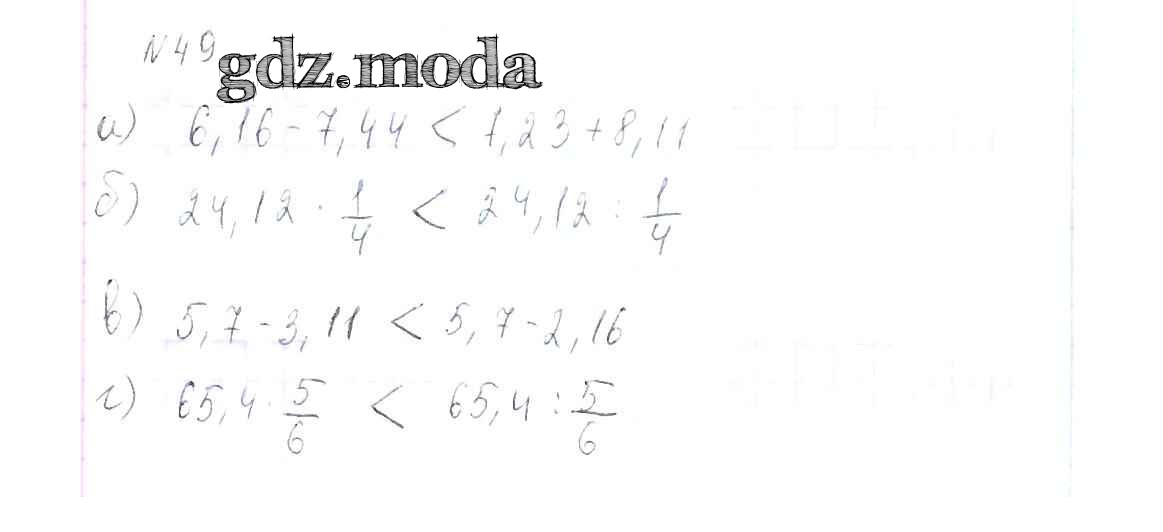 N49 gdz.moda
а) 6,16 - 7,44 < 7,23 + 8,11
б) 24,12 · 1/4 < 24,12 : 1/4
в) 5,7 - 3,11 < 5,7 - 2,16
г) 65,4 · 5/6 < 65,4 : 5/6